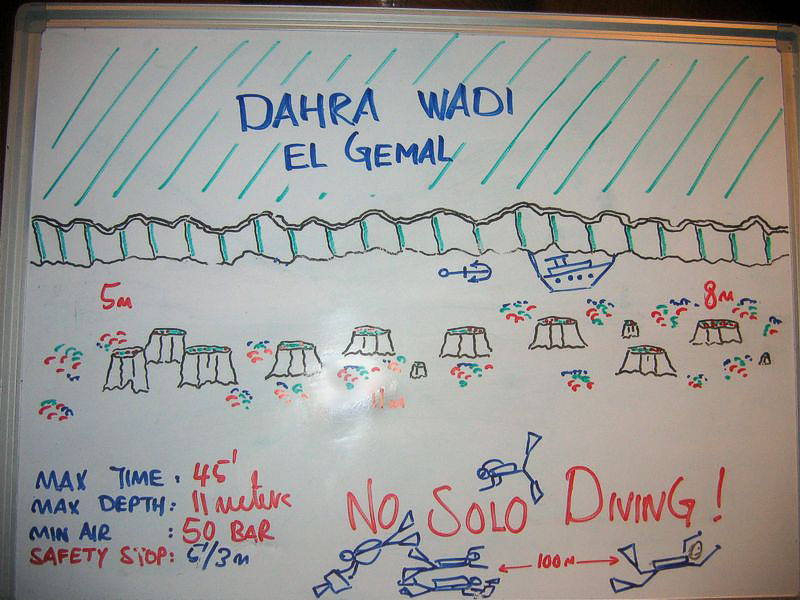 DAHRA WADI
EL GEMAL
5m
8m
11m
MAX TIME: 45'
MAX DEPTH: 11 meters
MIN AIR : 50 BAR
SAFETY STOP: 5'/3m
NO SOLO DIVING!
100m